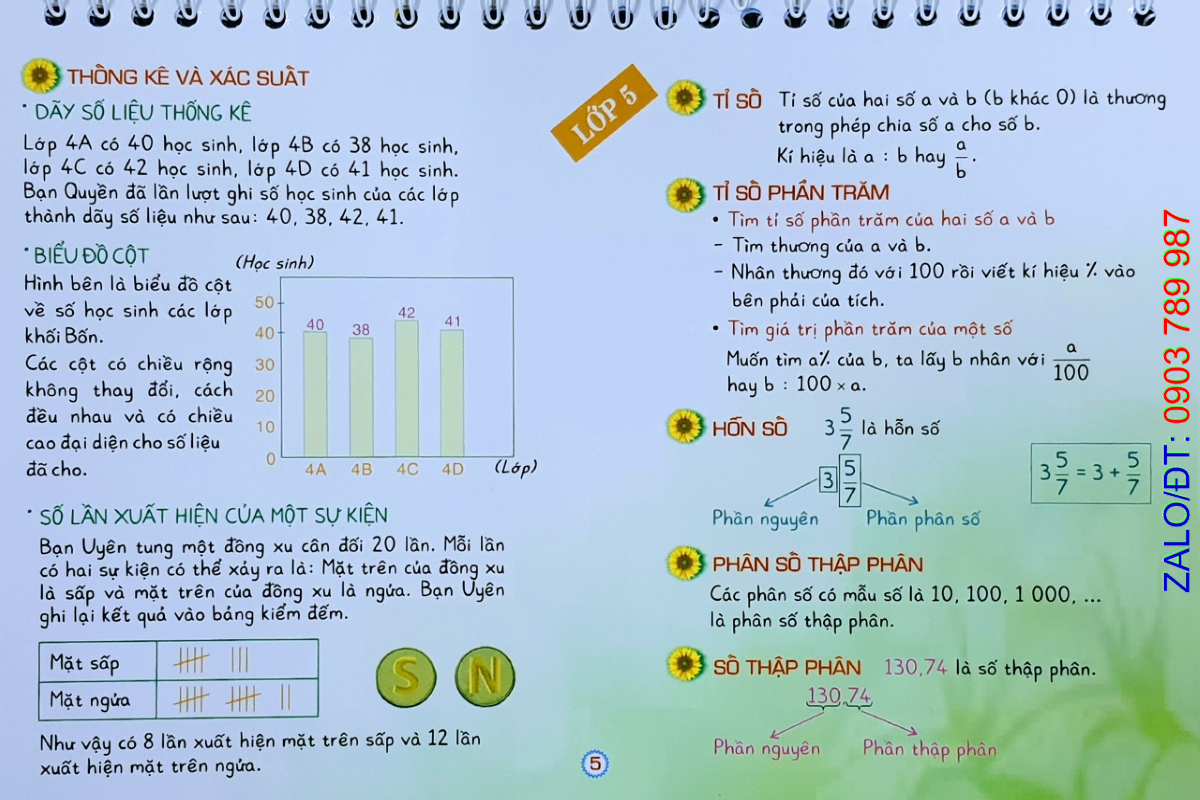 THỐNG KÊ VÀ XÁC SUẤT
• DÃY SỐ LIỆU THỐNG KÊ
Lớp 4A có 40 học sinh, lớp 4B có 38 học sinh,
lớp 4C có 42 học sinh, lớp 4D có 41 học sinh.
Bạn Quyền đã lần lượt ghi số học sinh của các lớp
thành dãy số liệu như sau: 40, 38, 42, 41.
• BIỂU ĐỒ CỘT
Hình bên là biểu đồ cột
về số học sinh các lớp
khối Bốn.
Các cột có chiều rộng
không thay đổi, cách
đều nhau và có chiều
cao đại diện cho số liệu
đã cho.
(Học sinh)
50
40
30
20
10
0
40 38 42 41
4A 4B 4C 4D (Lớp)
• SỐ LẦN XUẤT HIỆN CỦA MỘT SỰ KIỆN
Bạn Uyên tung một đồng xu cân đối 20 lần. Mỗi lần
có hai sự kiện có thể xảy ra là: Mặt trên của đồng xu
là sấp và mặt trên của đồng xu là ngửa. Bạn Uyên
ghi lại kết quả vào bảng kiểm đếm.
Mặt sấp
Mặt ngửa
S N
Như vậy có 8 lần xuất hiện mặt trên sấp và 12 lần
xuất hiện mặt trên ngửa.
5
LỚP 5
TỈ SỐ Tỉ số của hai số a và b (b khác 0) là thương
trong phép chia số a cho số b.
Kí hiệu là a : b hay a/b.
TỈ SỐ PHẦN TRĂM
• Tìm tỉ số phần trăm của hai số a và b
– Tìm thương của a và b.
– Nhân thương đó với 100 rồi viết kí hiệu % vào
bên phải của tích.
• Tìm giá trị phần trăm của một số
Muốn tìm a% của b, ta lấy b nhân với a/100
hay b : 100 × a.
HỖN SỐ 3 5/7 là hỗn số
3 5/7
Phần nguyên Phần phân số
3 5/7 = 3 + 5/7
PHÂN SỐ THẬP PHÂN
Các phân số có mẫu số là 10, 100, 1 000, ...
là phân số thập phân.
SỐ THẬP PHÂN 130,74 là số thập phân.
130,74
Phần nguyên Phần thập phân
ZALO/ĐT: 0903 789 987